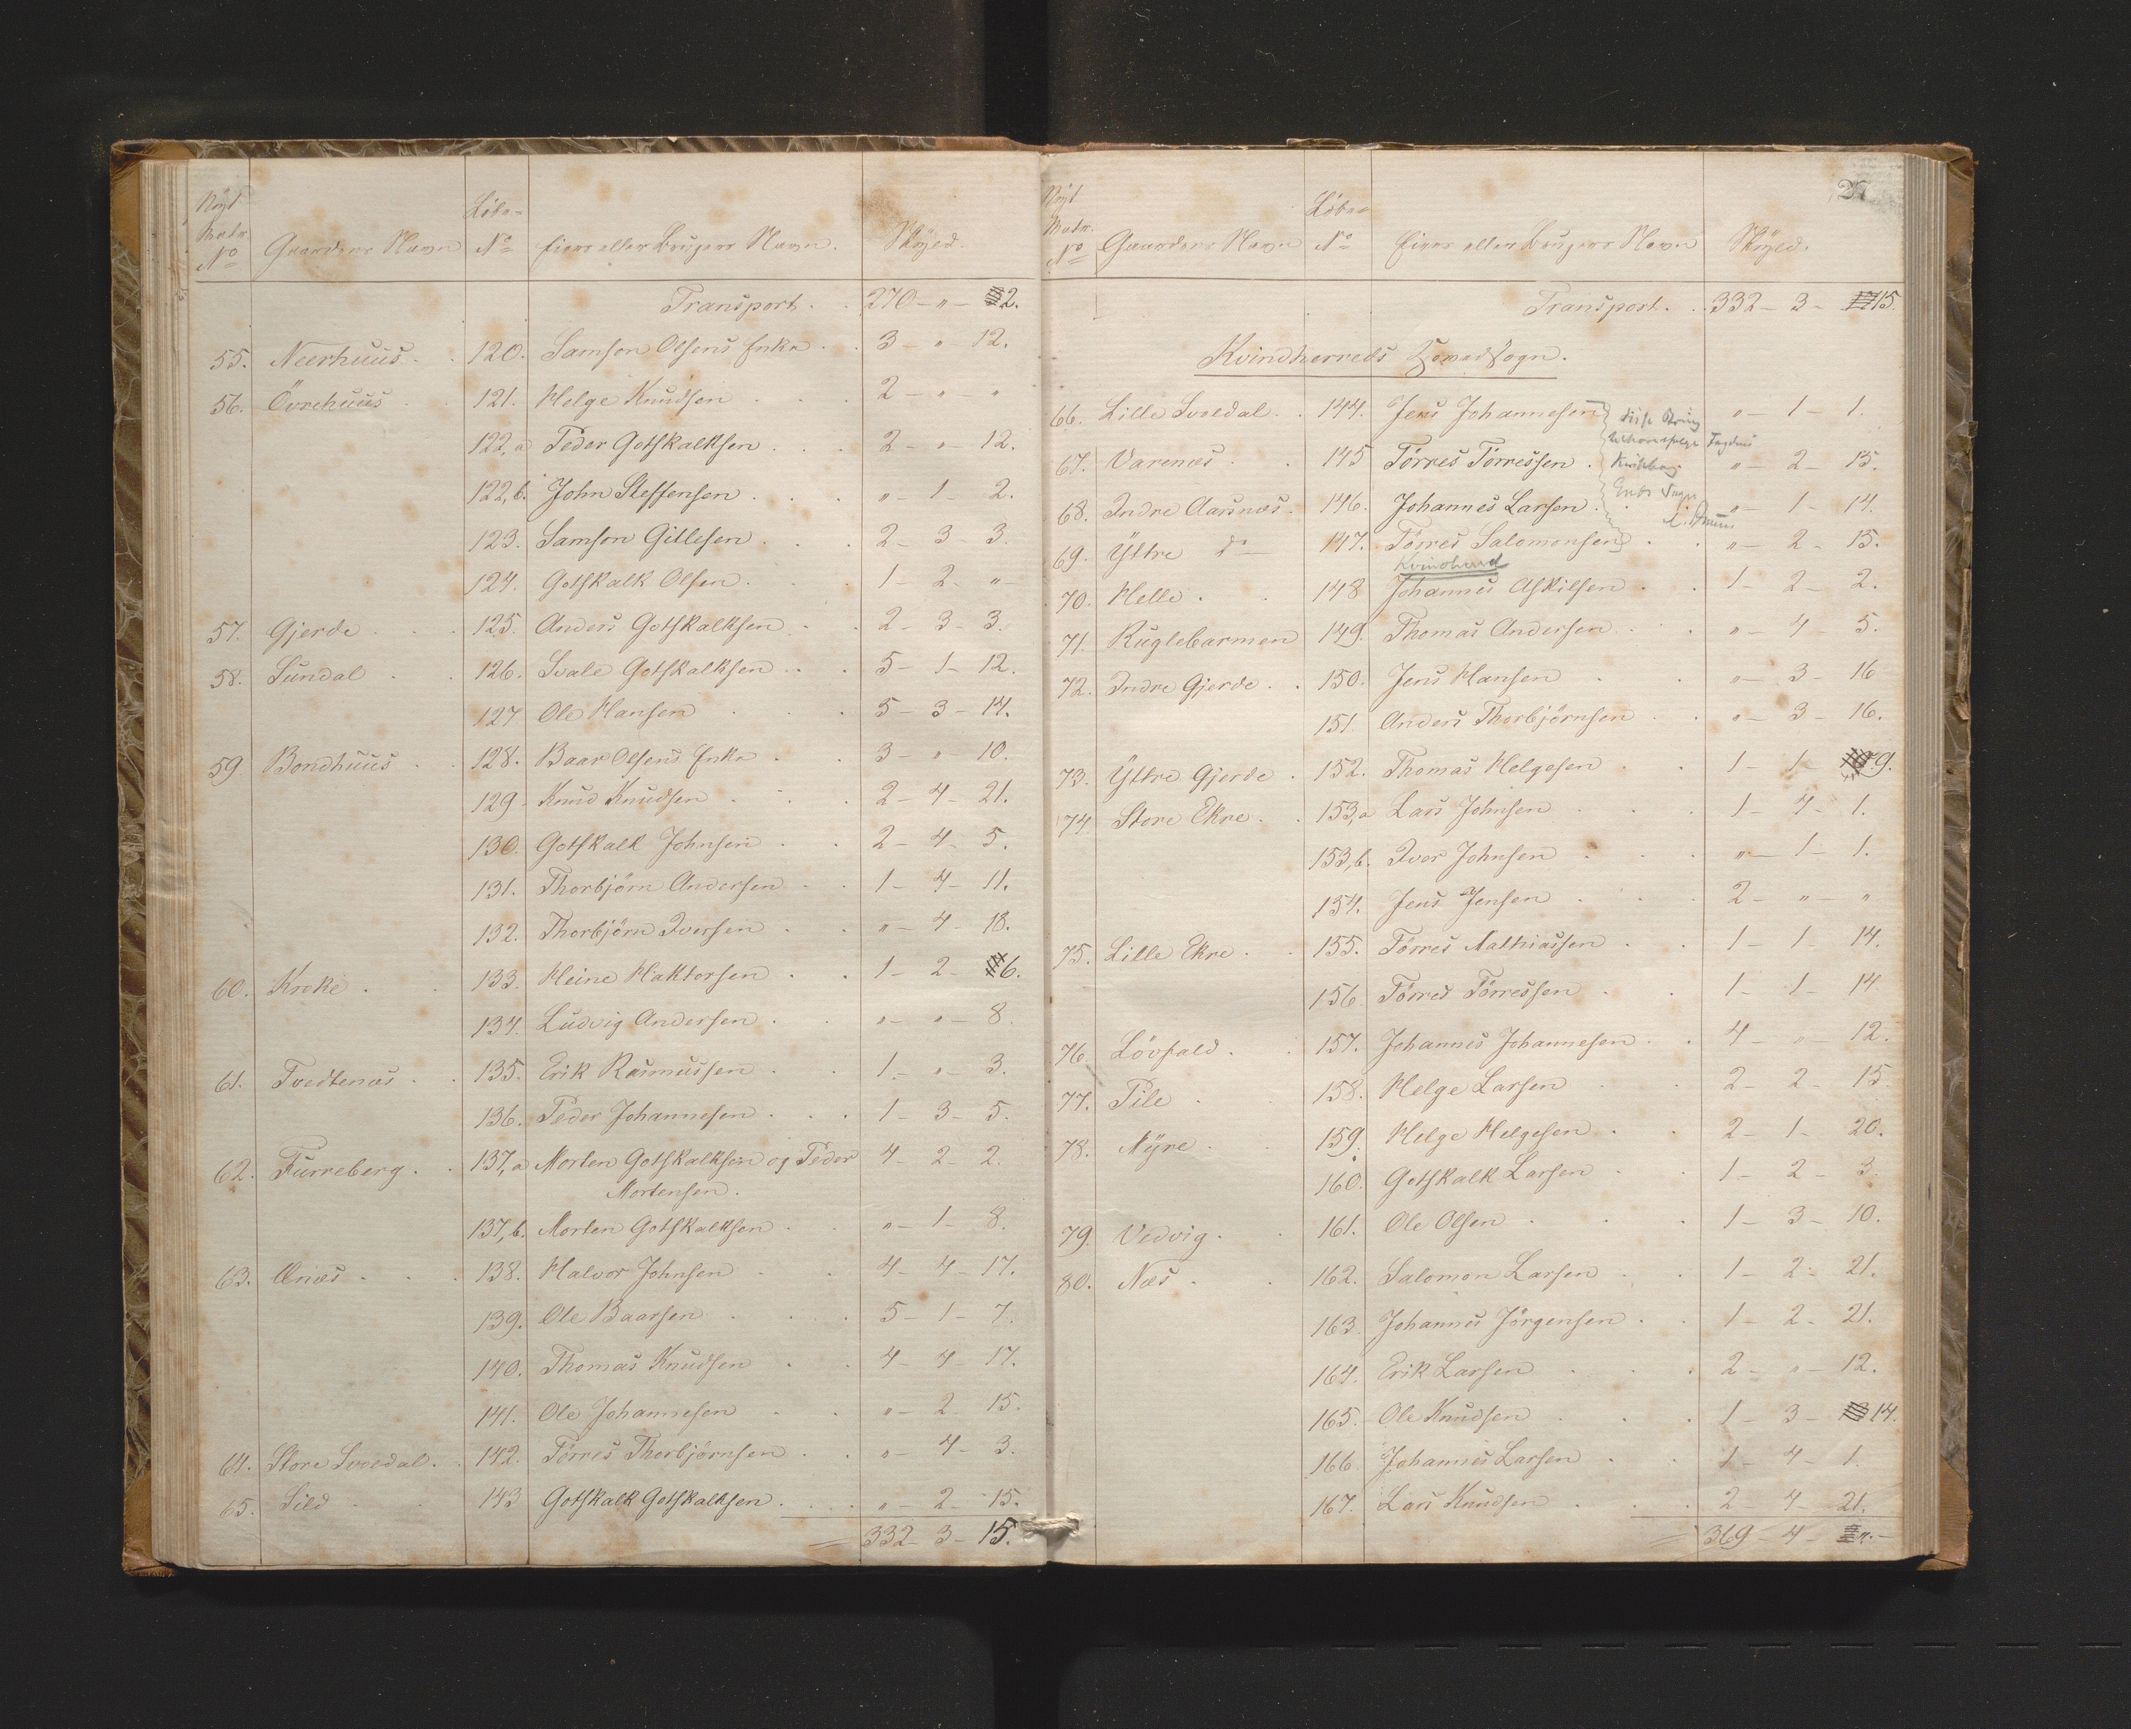 Nyt
Matr.
No Gaardens Navn Løbe-No Eiers eller Brugers Navn. Skyld.
Transport . . 270 - " - 2.
55. Neerhuus . . 120. Samson Olsens Enke . . 3 - " - 12.
56. Övrehuus . 121. Helge Knudsen . . . 2 - " - "
122,a Peder Gotskalksen . . . 2 - " - 12.
122,b. John Steffensen . . . " - 1 - 2.
123. Samson Gillesen . . . 2 - 3 - 3.
124. Gotskalk Olsen . . 1 - 2 - " -
57. Gjerde . . . 125. Anders Gotskalksen . . 2 - 3 - 3.
58. Sundal . . 126. Svale Gotskalksen . . . 5 - 1 - 12.
127 Ole Hansen . . . 5 - 3 - 14.
59. Bondhuus . . 128. Baar Olsens Enke . . 3 - " - 10.
129 - Knud Knudsen . . . 2 - 4 - 21.
130. Gotskalk Johnsen . . 2 - 4 - 5.
131. Thorbjörn Andersen . . 1 - 4 - 11.
132. Thorbjörn Iversen . . " - 4 - 18.
60. Kroke . . 133. Heine Haktorsen . . 1 - 2 - 6.
134. Ludvig Andersen . . " - " - 8.
61. Tvedtenæs . . 135. Erik Rasmussen . . 1 - " - 3.
136. Peder Johannesen . . . 1 - 3 - 5.
62. Furreberg . . 137,a Morten Gotskalksen og Peder 4 - 2 - 2.
Mortensen.
137,b. Morten Gotskalksen . . " - 1 - 8.
63. Ænæs . . . 138. Halvor Johnsen . . 4 - 4 - 17.
139. Ole Baarsen . . . 5 - 1 - 7.
140. Thomas Knudsen . . 4 - 4 - 17.
141. Ole Johannesen . . " - 2 - 15.
64. Store Svedal . . 142. Törres Thorbjörnsen . . " - 4 - 3.
65. Sild . . 143 Gotskalk Gotskalksen . . . " - 2 - 15.
= 332 - 3 - 15.
27
Nyt
Matr.
No Gaardens Navn Løbe-No Eiers eller Brugers Navn Skyld.
Transport . . 332 - 3 - 15.
Kvindherreds Hovedsogn.
66. Lille Svedal . . 144. Jens Johannesen " - 1 - 1.
67. Varenæs . . 145 Törres Törressen . " - 2 - 15.
68. Indre Aarsnæs . 146. Johannes Larsen . . " - 1 - 14.
69. Yttre do 147. Törres Salomonsen . . " - 2 - 15.
Kvindherred
70. Helle . . 148 Johannes Askilsen . . 1 - 2 - 2.
71. Ruglebarmen 149. Thomas Andersen . . " - 4 - 5.
72. Indre Gjerde . . 150. Jens Hansen . . " - 3 - 16
151 Anders Thorbjörnsen . . " - 3 - 16.
73. Yttre Gjerde . 152. Thomas Helgesen . . 1 - 1 - 9.
74 Store Ekre . . 153,a Lars Johnsen . . 1 - 4 - 1.
153,b. Iver Johnsen . . . " - 1 - 1.
154. Jens Jensen . . . 2 - " - "
75. Lille Ekre . . 155. Törres Mathiassen . . 1 - 1 - 14.
156. Törres Törressen . . 1 - 1 - 14.
76. Lövfald . . 157. Johannes Johannesen . . 4 - " - 12.
77. Pile . 158. Helge Larsen . . 2 - 2 - 15.
78. Myre . . 159. Helge Helgesen . . 2 - 1 - 20.
160. Gotskalk Larsen . . 1 - 2 - 3.
79. Vedvig . . 161. Ole Olsen . . . 1 - 3 - 10.
80. Næs . . 162. Salomon Larsen . . 1 - 2 - 21.
163. Johannes Jörgensen . . 1 - 2 - 21.
164. Erik Larsen . . . 2 - " - 12.
165. Ole Knudsen . . . 1 - 3 - 14.
166. Johannes Larsen . . 1 - 4 - 1.
167. Lars Knudsen . . . 2 - 4 - 21.
= 369 - 4 - " -